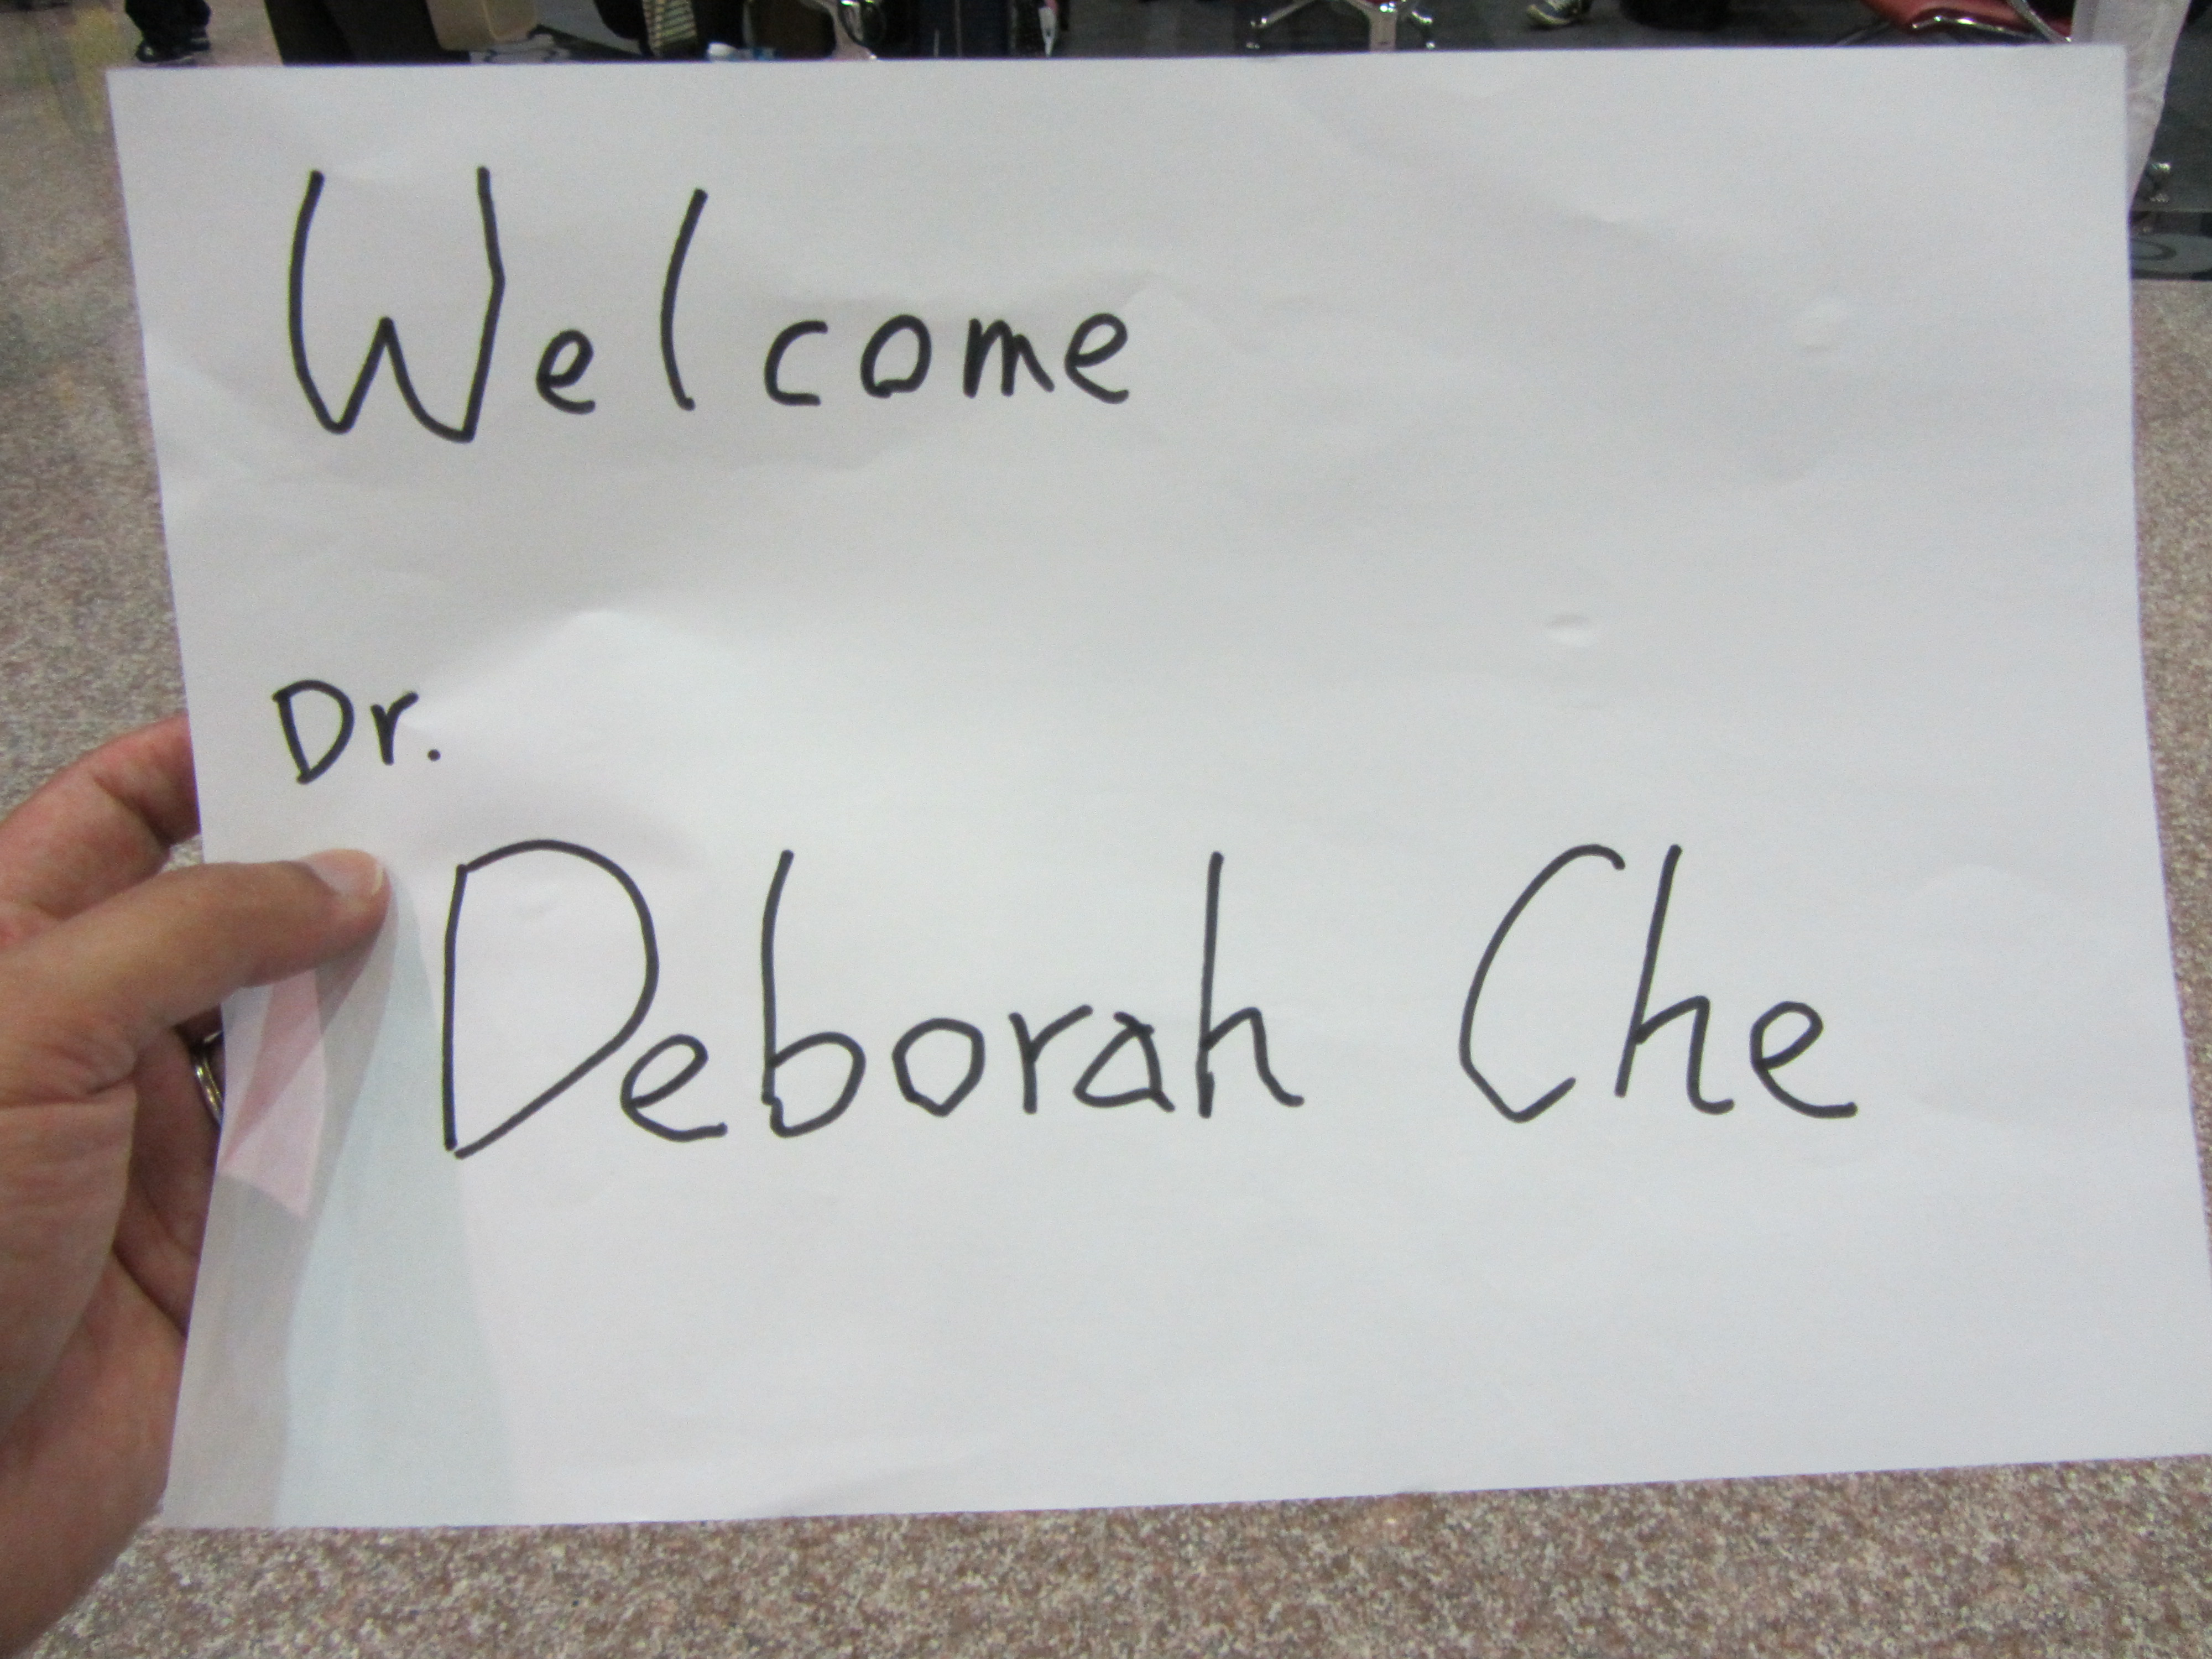 Welcome
Dr.
Deborah Che